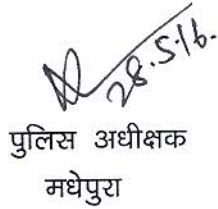 28.5.16.
पुलिस अधीक्षक
मधेपुरा